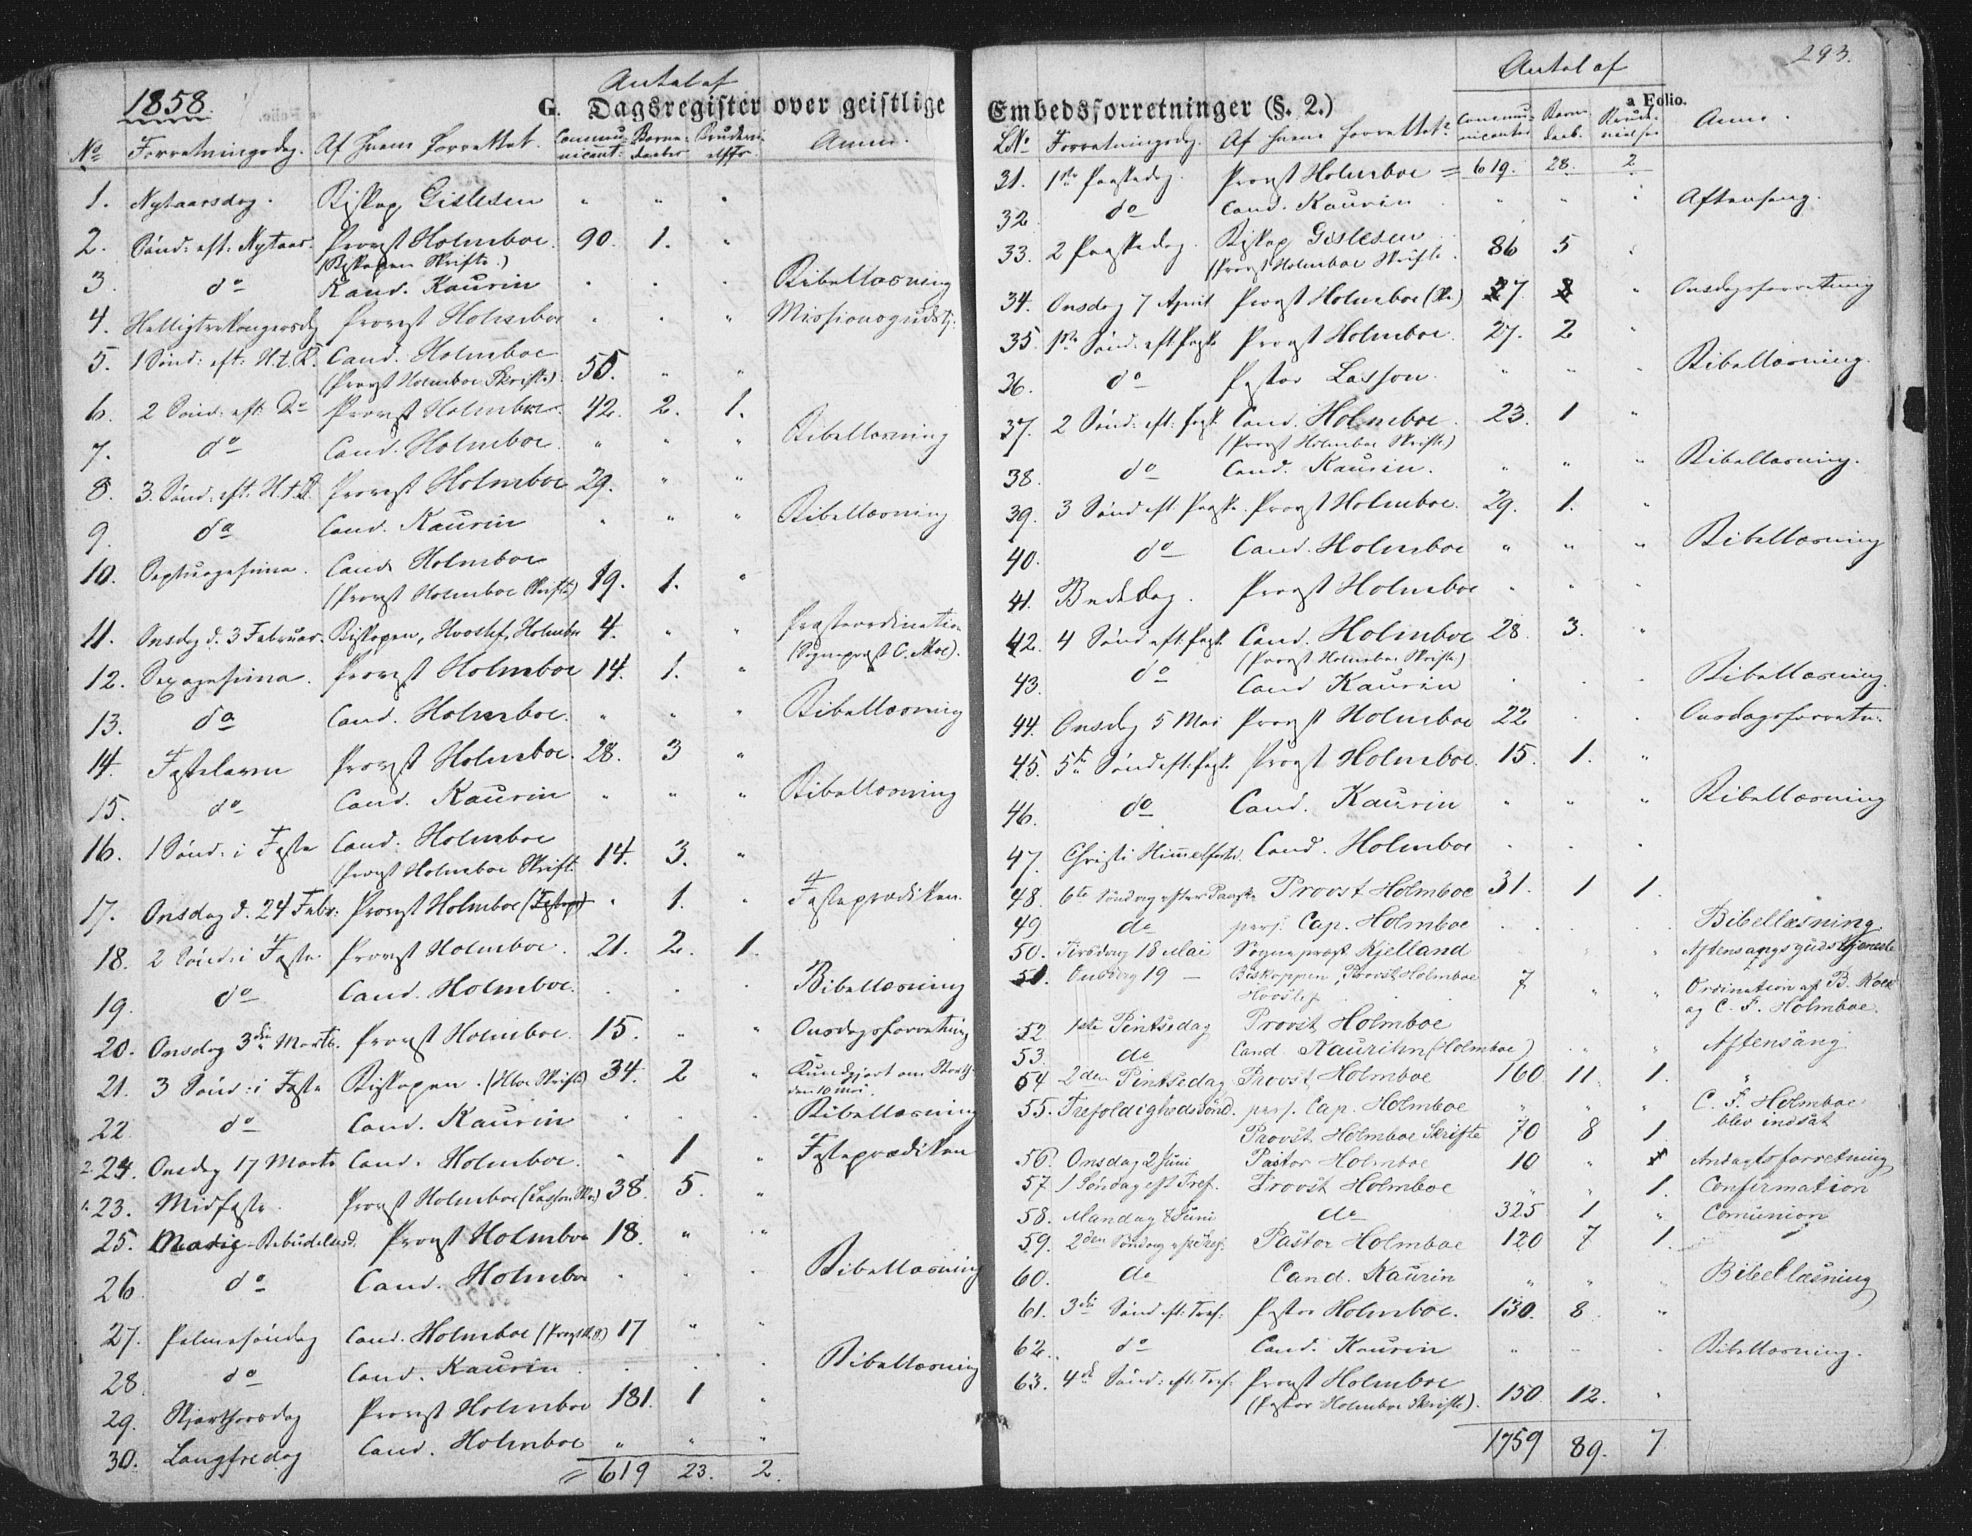 1858.
Antal af
G. Dagsregister over geistlige
No Forretningsdag. Af hvem forrettet. Communicant: Barnedaaber Brudevielser. Anm.
1. Nytaarsdag. Biskop Gislesen " " "
2. Sönd. eft. Nytaar. Provst Holmboe. 90. 1. "
(Biskopen Skrifte.)
3. do Kand. Kaurin " " " Bibellæsning
4. Helligtrekongersdag Provst Holmboe " " " Missionsgudstj:
5. 1 Sönd: eft: H.t.K. Cand. Holmboe
(Provst Holmboe Skrifte) 55. " "
6. 2 Sönd: eft: Do Provst Holmboe. 42. 2. 1.
7. do Cand. Holmboe. " " " Bibellæsning
8. 3. Sönd. eft. H.t.K. Provst Holmboe 29. " "
9. do Cand. Kaurin " " " Bibellæsning
10. Septuagesima. Cand. Holmboe
(Provst Holmboe Skrifte) 19. 1. "
11. Onsdag d. 3 Februar. Biskopen, Hvoslef, Holmboe 4. " " Præsteordination
(Sognepræst C. Moe).
12. Sexagesima. Provst Holmboe 14. 1. "
13. do Cand. Holmboe. " " " Bibellæsning
14. Fastelavn Provst Holmboe. 28. 3 "
15. do Cand. Kaurin " " " Bibellæsning
16. 1 Sönd: i Faste Cand. Holmboe
(Provst Holmboe Skrift. 14. 3. "
17. Onsdag d. 24 Febr: Provst Holmboe " 1. " Fasteprædiken.
18. 2 Sönd: i Faste Provst Holmboe. 21. 2. 1.
19. do Cand. Holmboe. " " " Bibellæsning
20. Onsdag 3die Marts. Provst Holmboe. 15. " " Onsdagsforretning
21. 3 Sönd: i Faste Biskopen. (Hboe Skrifte) 34. 2 " Kundgjort om
den 10 Mai.
22 do Cand. Kaurin " " " Bibellæsning
2. 24. Onsdag 17 Marts Cand. Holmboe. " 1 " Fasteprædiken
1. 23. Midfaste. Provst Holmboe (Lasson Skr.) 38. 5. "
25. Mariæ Bebudelsesd. Provst Holmboe 18. " "
26. do Cand. Holmboe " " " Bibellæsning
27. Palmesöndag Cand. Holmboe 17 " "
28. do Cand. Kaurin " " " Bibellæsning
29. Skjærthorsdag Provst Holmboe 181. 1 "
30. Langfredag Cand. Holmboe " " "
= 619 23. 2.
293.
Antal af
Embedsforretninger (§. 2.)
a Folio.
LNo Forretningsdag. Af hvem forrettet. Communicanter Barnedaab. Brudevielser Anm.
31. 1ste Paaskedag. Provst Holmboe = 619. 28. 2.
32. do Cand. Kaurin " " " Aftensang.
33. 2 Paaskedag. Biskop Gislesen
(Provst Holmboe Skrifte. 86 5 "
34. Onsdag 7 April Provst Holmboe (Skr.) 27. " Onsdagsforretning
35. 1ste Sönd. eft. Paaske Provst Holmboe. 27. 2 "
36. do Pastor Lasson. " " " Bibellæsning.
37. 2 Sönd: eft: Pask. Cand. Holmboe. 23. 1 "
(Provst Holmboe Skrifte.)
38. do Cand. Kaurin. " " " Bibellæsning.
39. 3 Sönd eft. Paaske. Provst Holmboe. 29. 1. "
40. do Cand. Holmboe " " " Bibellæsning
41. Bededag. Provst Holmboe " " "
42. 4 Sönd eft. Pask. Cand. Holmboe 28. 3. "
(Provst Holmboe Skrifte)
43. do Cand Kaurin " " " Bibellæsning.
44. Onsdag 5 Mai Provst Holmboe 22 " " Onsdagsforretn.
45. 5te Sönd eft. Pask. Provst Holmboe. 15. 1. "
46. do Cand. Kaurin " " " Bibellæsning
47. Christi Himmelfartsd. Cand. Holmboe " " "
48. 6te Söndag efter Paaske Provst Holmboe 31. 1 1. "
49 do pers. Cap. Holmboe " " " Bibellæsning
50. Tirsdag 18 Mai Sognepræst Kjelland " " " Aftensangsgudstjeneste
51. Onsdag 19 — Biskoppen, Provst Holmboe 7 " " Ordination af B.
Hvoslef og C. F. Holmboe.
52 1ste Pintsedag Provst Holmboe
53. do Cand. Kaurin (Holmboe) " " " Aftensang
54 2den Pintsedag Provst Holmboe 160 11. 1. "
55. Trefoldighedssönd. pers. Cap. Holmboe " " " C. F. Holmboe
Provst Holmboe Skrifte 70 8 1. blev indsat
56. Onsdag 2 Juni Pastor Holmboe 10 " Andagtsforretning
57 1 Söndag eft Tref. Provst Holmboe " " 1. Confirmation
58. Mandag 7 Juni do 325 1 " Comunion
59. 2den Söndag eft Tref. Pastor Holmboe 120 7 1.
60. do Cand. Kaurin " " " Bibellæsning
61. 3die Sönd eft: Tref: Pastor Holmboe. 130. 8 "
62. do Cand. Kaurin " " " Bibellæsning.
63. 4de Sönd: eft: Tref: Provst Holmboe
(Pastor Holmboe Skrifte). 150 12. "
1759 89. 7